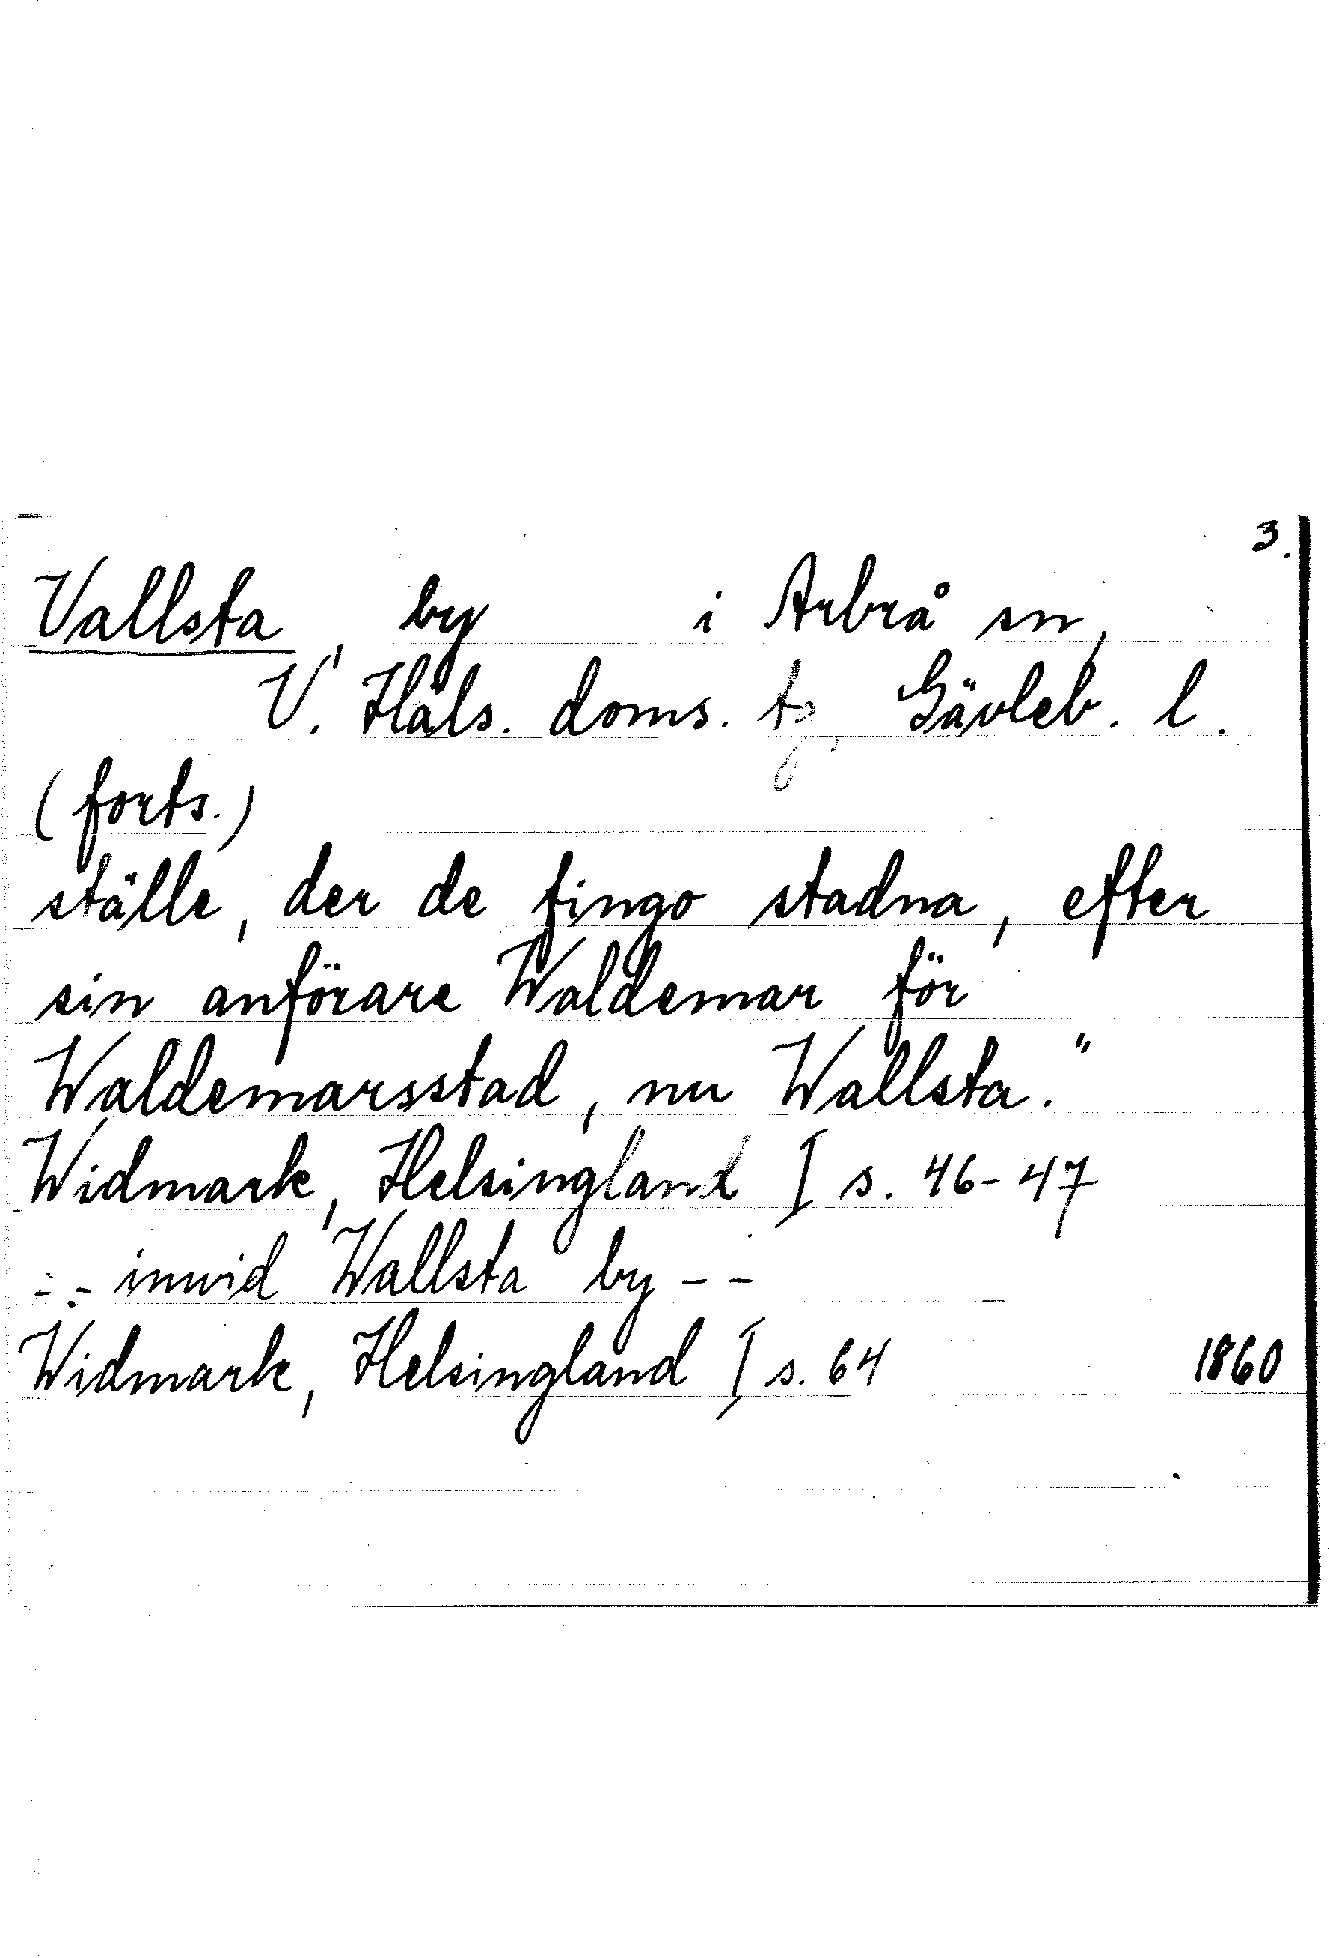 3.
Vallsta, by i Arbrå sn,
V. Häls. doms. tg, Gävleb. l.
(forts.)
ställe, der de fingo stadna, efter
sin anförare Waldemar för
Waldemarsstad, nu Wallsta."
Widmark, Helsingland I s. 46-47
-.- inwid Wallsta by - -
Widmark, Helsingland I s. 64 1860